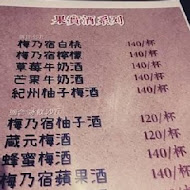 果實酒系列
梅乃宿白桃 140/杯
梅乃宿檸檬 140/杯
草莓牛奶酒 140/杯
芒果牛奶酒 140/杯
紀州柚子梅酒 140/杯
梅乃宿柚子酒 120/杯
蔵元梅酒 120/杯
蜂蜜梅酒 150/杯
梅乃宿蘋果酒 140/